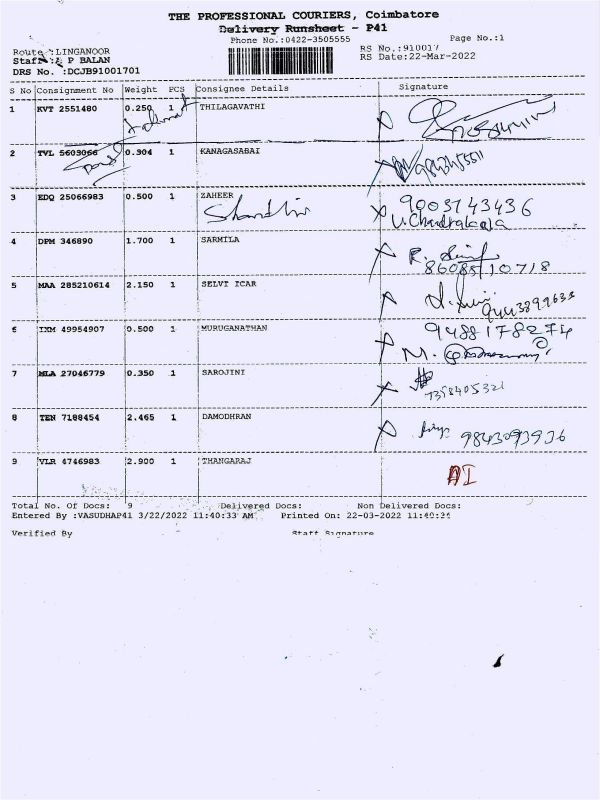 THE PROFESSIONAL COURIERS, Coimbatore
Delivery Runsheet - P41
Phone No.:0422-3505555 Page No.:1
Route :LINGANOOR RS No.:910017
Staff : P BALAN RS Date:22-Mar-2022
DRS No. :DCJB91001701
S No Consignment No Weight PCS Consignee Details Signature
1 KVT 2551480 0.250 1 THILAGAVATHI
2 TVL 5603066 0.304 1 KANAGASABAI
3 EDQ 25066983 0.500 1 ZAHEER 9003743436
U. Chandralala
4 DPM 346890 1.700 1 SARMILA
8608510718
5 MAA 285210614 2.150 1 SELVI ICAR
6 IXM 49954907 0.500 1 MURUGANATHAN 9488178274
M.
7 MLA 27046779 0.350 1 SAROJINI
7358405321
8 TEN 7188454 2.465 1 DAMODHRAN
9843093936
9 VLR 4746983 2.900 1 THANGARAJ AI
Total No. Of Docs: 9 Delivered Docs: Non Delivered Docs:
Entered By :VASUDHAP41 3/22/2022 11:40:33 AM Printed On: 22-03-2022 11:40:26
Verified By Staff Signature